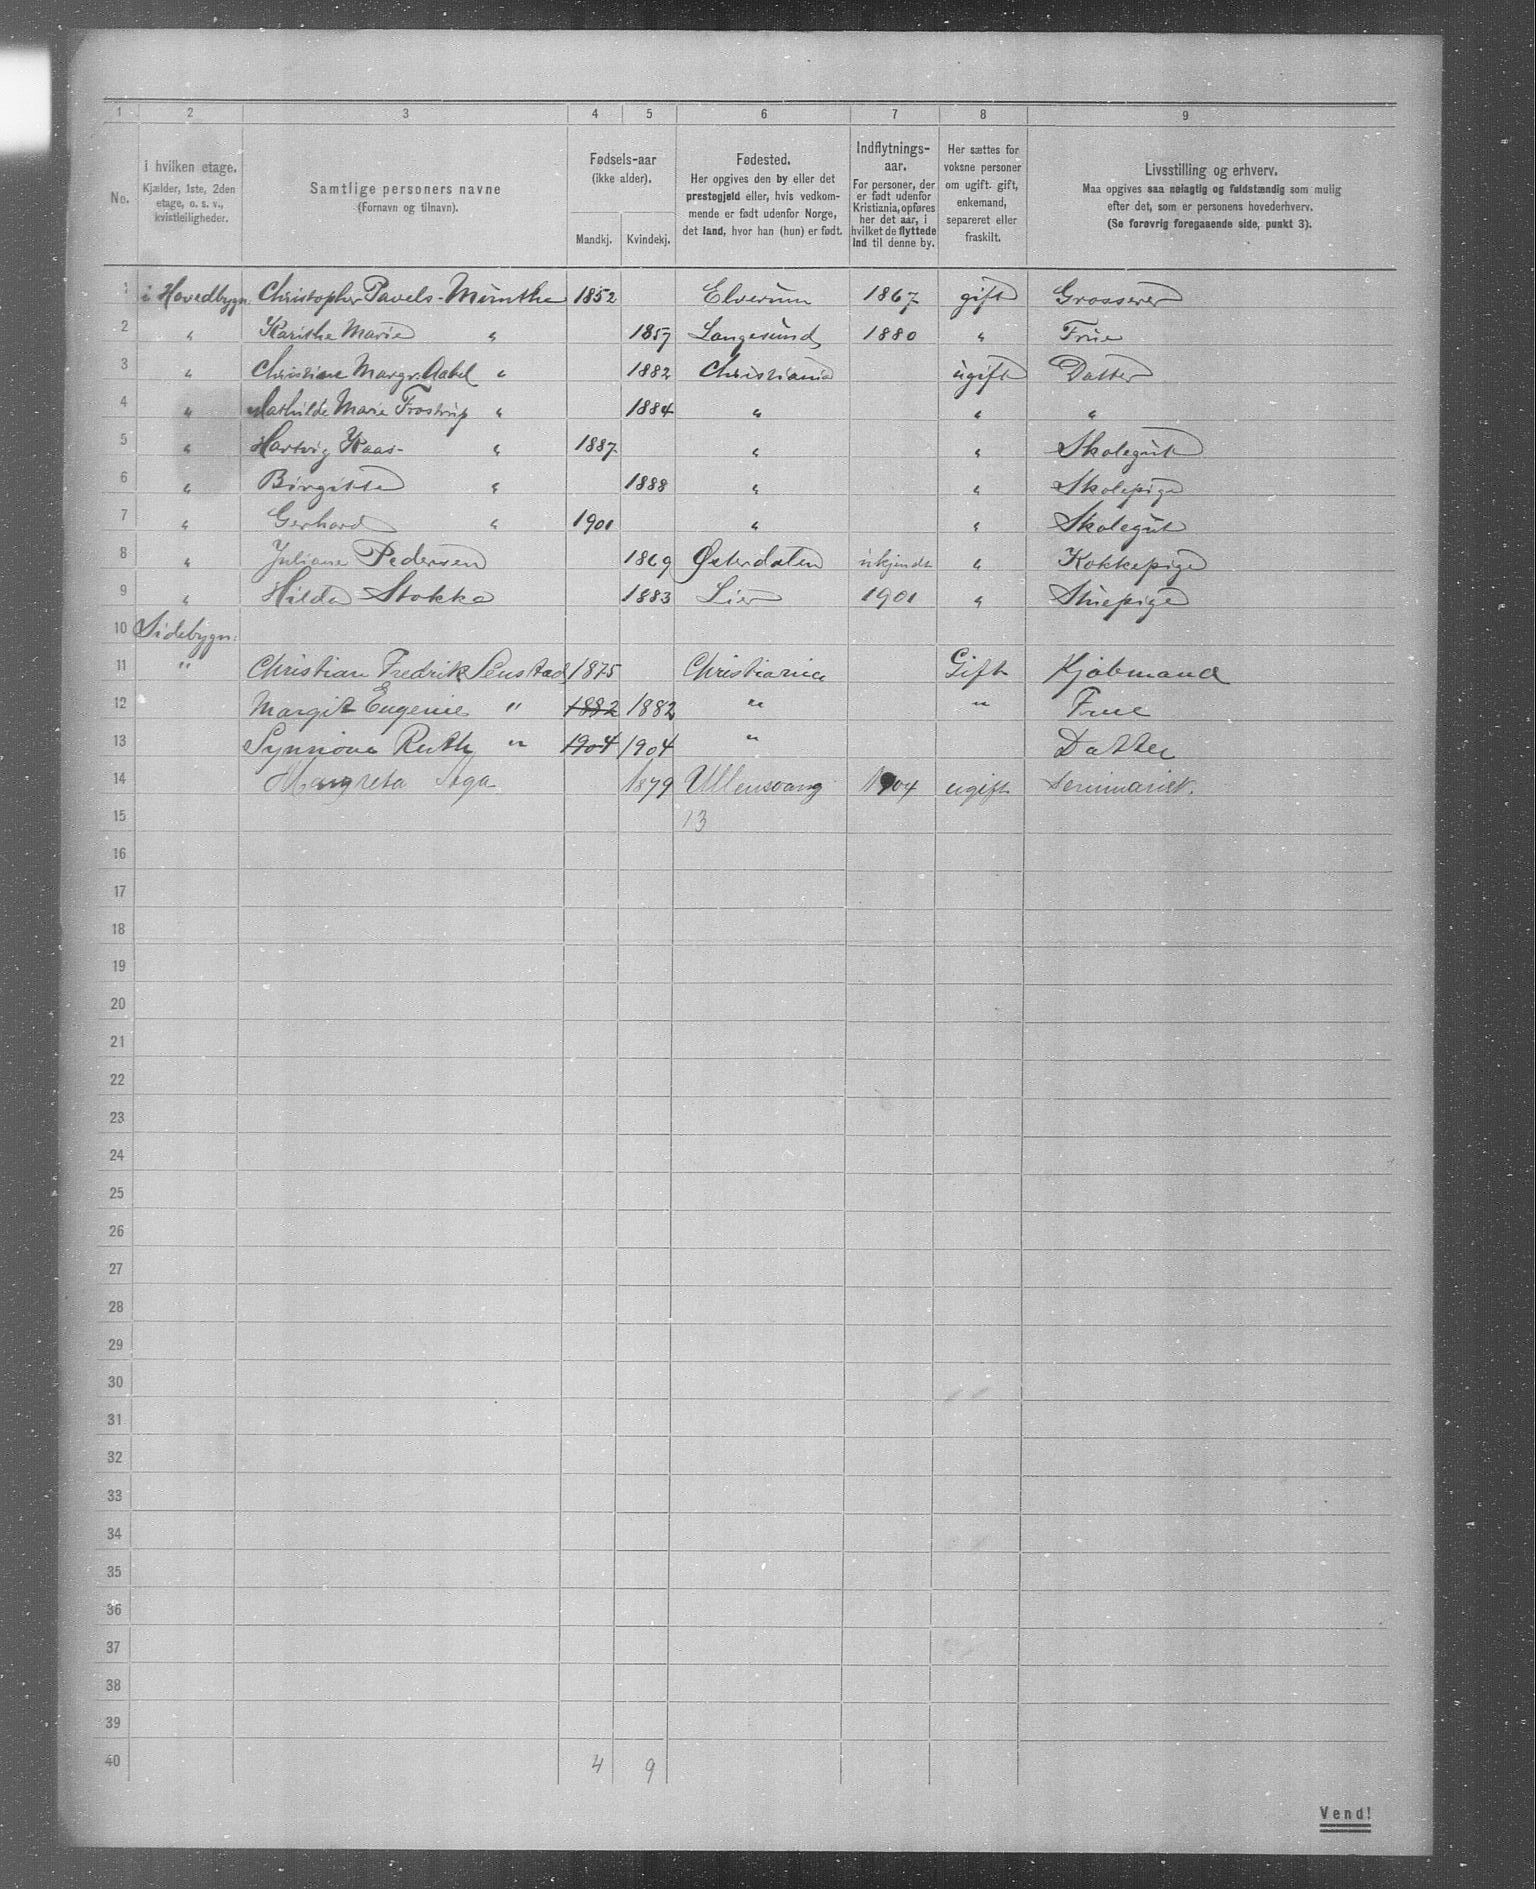 1 2 3 4 5 6 7 8 9
No.
i hvilken etage.
Kjælder, 1ste, 2den
etage, o. s. v.,
kvistleiligheder.
Samtlige personers navne
(Fornavn og tilnavn).
Fødsels-aar
(ikke alder).
Mandkj. Kvindekj.
Fødested.
Her opgives den by eller det
prestegjeld eller, hvis vedkom-
mende er født udenfor Norge,
det land, hvor han (hun) er født.
Indflytnings-
aar.
For personer, der
er født udenfor
Kristiania, opføres
her det aar, i
hvilket de flyttede
ind til denne by.
Her sættes for
voksne personer
om ugift, gift,
enkemand,
separeret eller
fraskilt.
Livsstilling og erhverv.
Maa opgives saa nøiagtig og fuldstændig som mulig
efter det, som er personens hovederhverv.
(Se forøvrig foregaaende side, punkt 3).
1 i Hovedbygn. Christopher Pavels-Münthe 1852 Elverum 1867 gift Grosserer
2 " Karithe Marie " 1857 Langesund 1880 " Frue
3 " Christiane Margr. Aabel " 1882 Christiania ugift Datter
4 " Mathilde Marie Frostrup " 1884 " " "
5 " Hartvig Kaas- " 1887 " " Skolegut
6 " Birgitte " 1888 " " Skolepige
7 " Gerhard " 1901 " " Skolegut
8 " Juliane Pedersen 1869 Østerdalen ukjendt " Kokkepige
9 " Hilda Stokke 1883 Lier 1901 " Stuepige
10 Sidebygn:
11 " Christian Fredrik Senstad 1875 Christiania Gift Kjøbmand
12 Margit Eugenie " 1882 1882 " " Frue
13 Synnöve Ruth " 1904 1904 " Datter
14 Margreta Aga 1879 Ullensvang 1904 ugift Seminarist.
15 13
16
17
18
19
20
21
22
23
24
25
26
27
28
29
30
31
32
33
34
35
36
37
38
39
40 4 9
Vend!